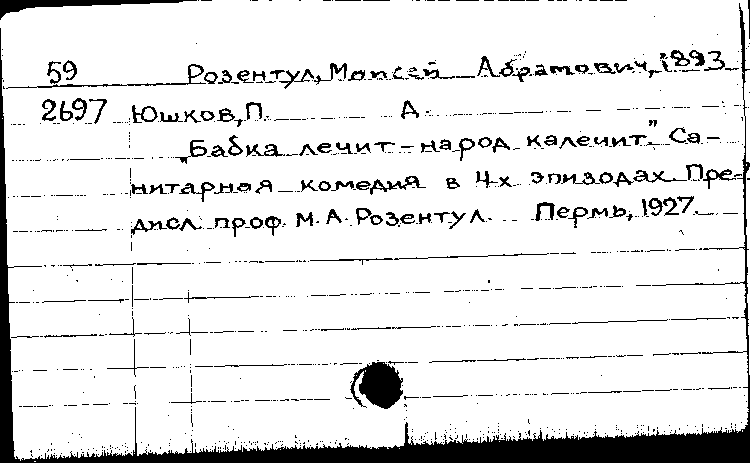 59 Розентул, Моисей Абрамович, 1893
2697 Юшков, П. А.
„Бабка лечит – народ калечит.” Са-
нитарная комедия в 4-х эпизодах. Пре-
дисл. проф. М. А. Розентул. Пермь, 1927.